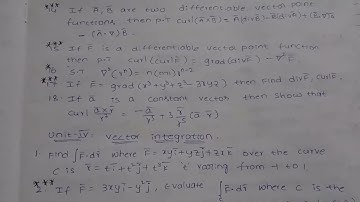 *** 14 If Ā, B̄ are two differentiable vector point
functions, then p.t curl(Ā×B̄) = Ā(div B̄) - B̄(div Ā) + (B̄.∇)Ā
- (Ā.∇)B̄.
*** 15 If F̄ is a differentiable vector point function
then p.t curl(curl F̄) = grad(div F̄) - ∇²F̄.
* 16 S.T ∇²(rⁿ) = n(n+1)rⁿ⁻²
*** 17 If F̄ = grad(x³+y³+z³-3xyz) then find div F̄, curl F̄.
18. If ā is a constant vector then show that
curl (ā×r̄)/r³ = -ā/r³ + 3r̄/r⁵ (ā.r̄)
Unit-IV: vector integration.
1. Find ∫F̄.dr̄ where F̄ = xyī+yzj̄+zxk̄ over the curve
C is r̄ = tī+t²j̄+t³k̄ 't' varing from -1 to 1.
*** 2. If F̄ = 3xyī-y²j̄, Evaluate ∫F̄.dr̄ where C is the